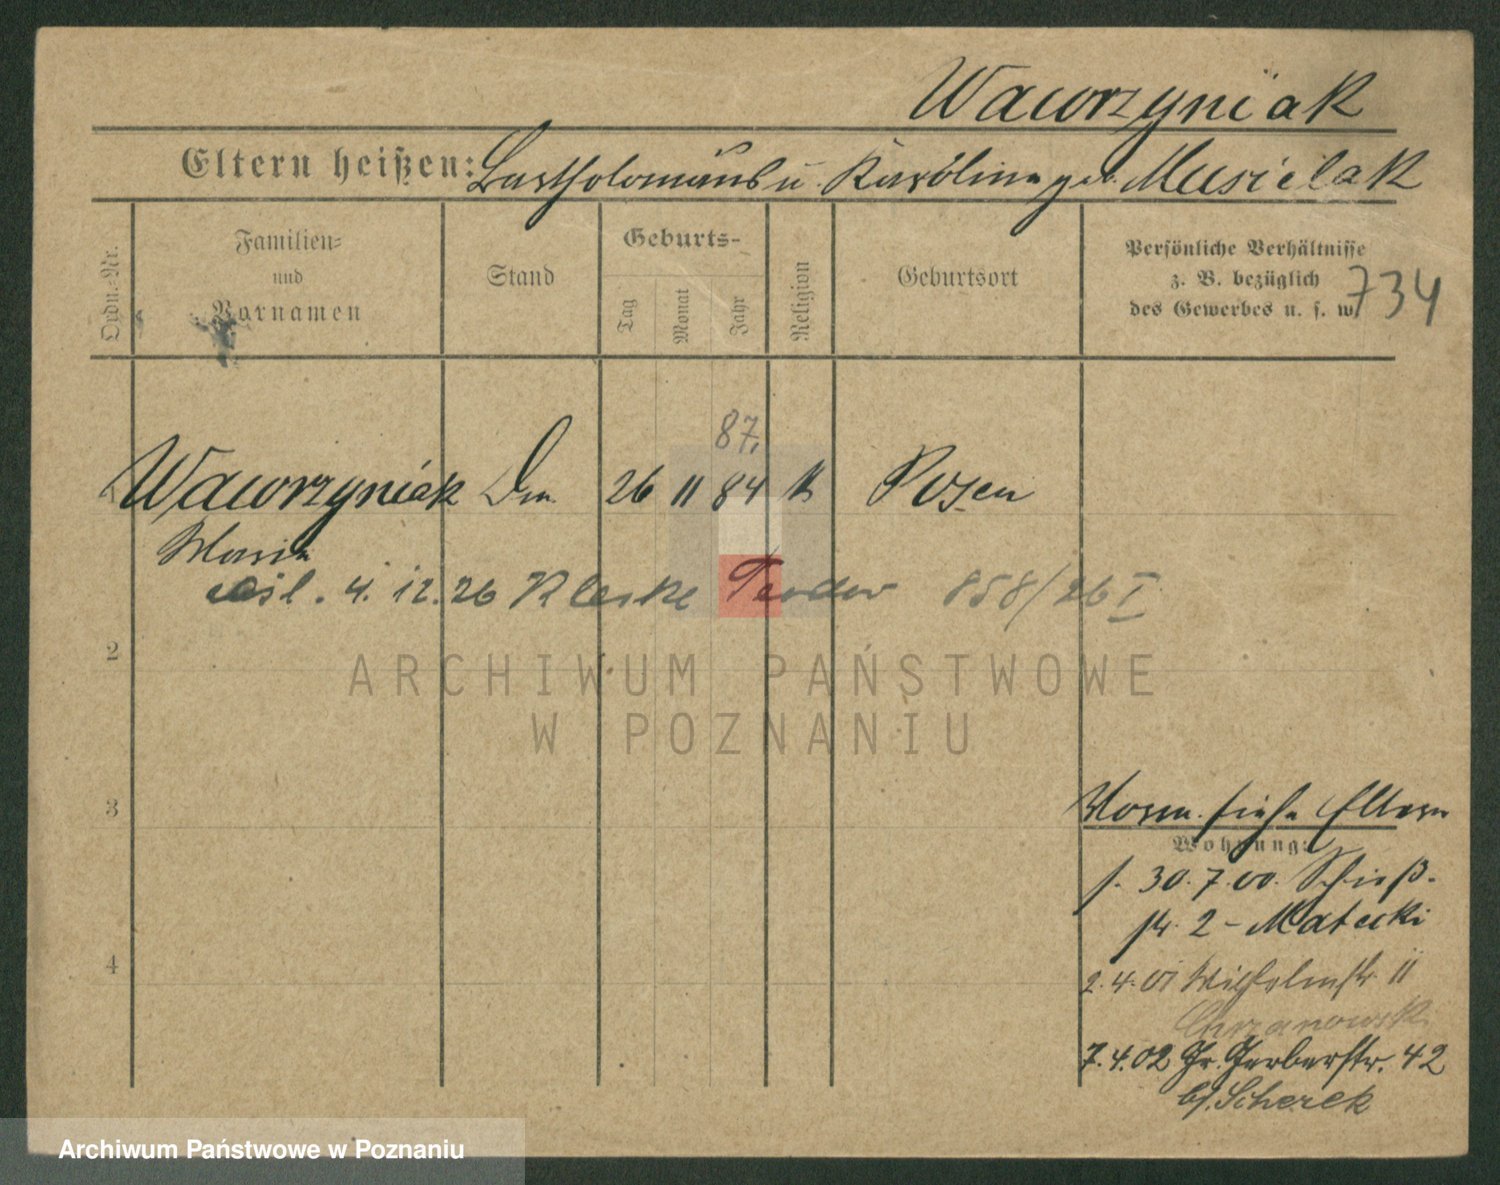 Wawrzyniak
Eltern heißen: Bartholomäus u. Karolina geb. Musielak
Ordn.-Nr.
Familien-
und
Vornamen
Stand
Geburts-
Tag
Monat
Jahr
Religion
Geburtsort
Persönliche Verhältnisse
z. B. bezüglich
des Gewerbes u. s. w.
734
87.
1 Wawrzyniak Dm. 26 11 84 K Posen
Maria
ził. 4. 12. 26 Kleske Teodor 858/26 I
2
ARCHIWUM PAŃSTWOWE
W POZNANIU
3
Vorm. siehe Eltern
Wohnung:
f. 30. 7. 00. Schieß-
str. 2 - Matecki
4
2. 4. 01 Wilhelmstr. 11
Chrzanowsk
7. 4. 02 Gr. Gerberstr. 42
bf. Scherek
Archiwum Państwowe w Poznaniu